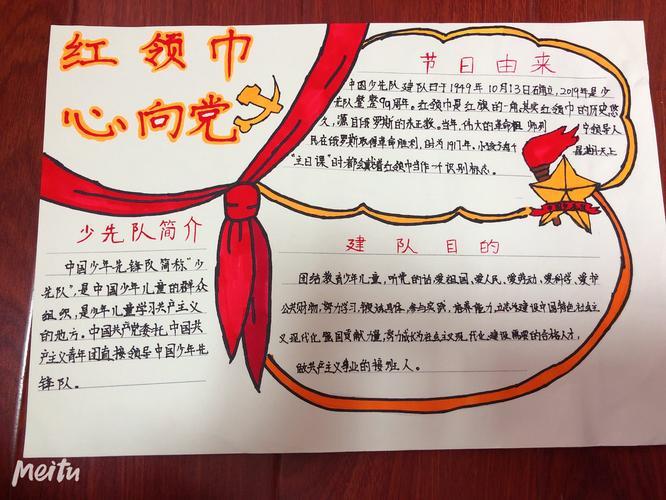 红领巾
心向党
节日由来
中国少年队建队日于1949年10月13日成立,2019年是少
先队整整70周年。红领巾是红旗的一角,其实红领巾的历史悠
久,源自俄罗斯的东正教。当年,伟大的革命 列 宁领导人
民在俄罗斯取得革命胜利,因为1917年,小孩子
"主日课"时,都会戴着红领巾当作一个识别标志。
少先队简介
中国少年先锋队简称"少
先队",是中国少年儿童的群众
组织,是少年儿童学习共产主义
的地方。中国共产党委托,中国共
产主义青年团直接领导中国少年先
锋队。
建队目的
团结教育少年儿童,听党的话,爱祖国、爱人民、爱劳动、爱科学、爱护
公共财物,努力学习,锻炼身体,参与实践,培养能力,立志为建设中国特色社会主
义现代化强国贡献力量,努力成长为社会主义现代化建设需要的合格人才,
做共产主义事业的接班人。
meitu